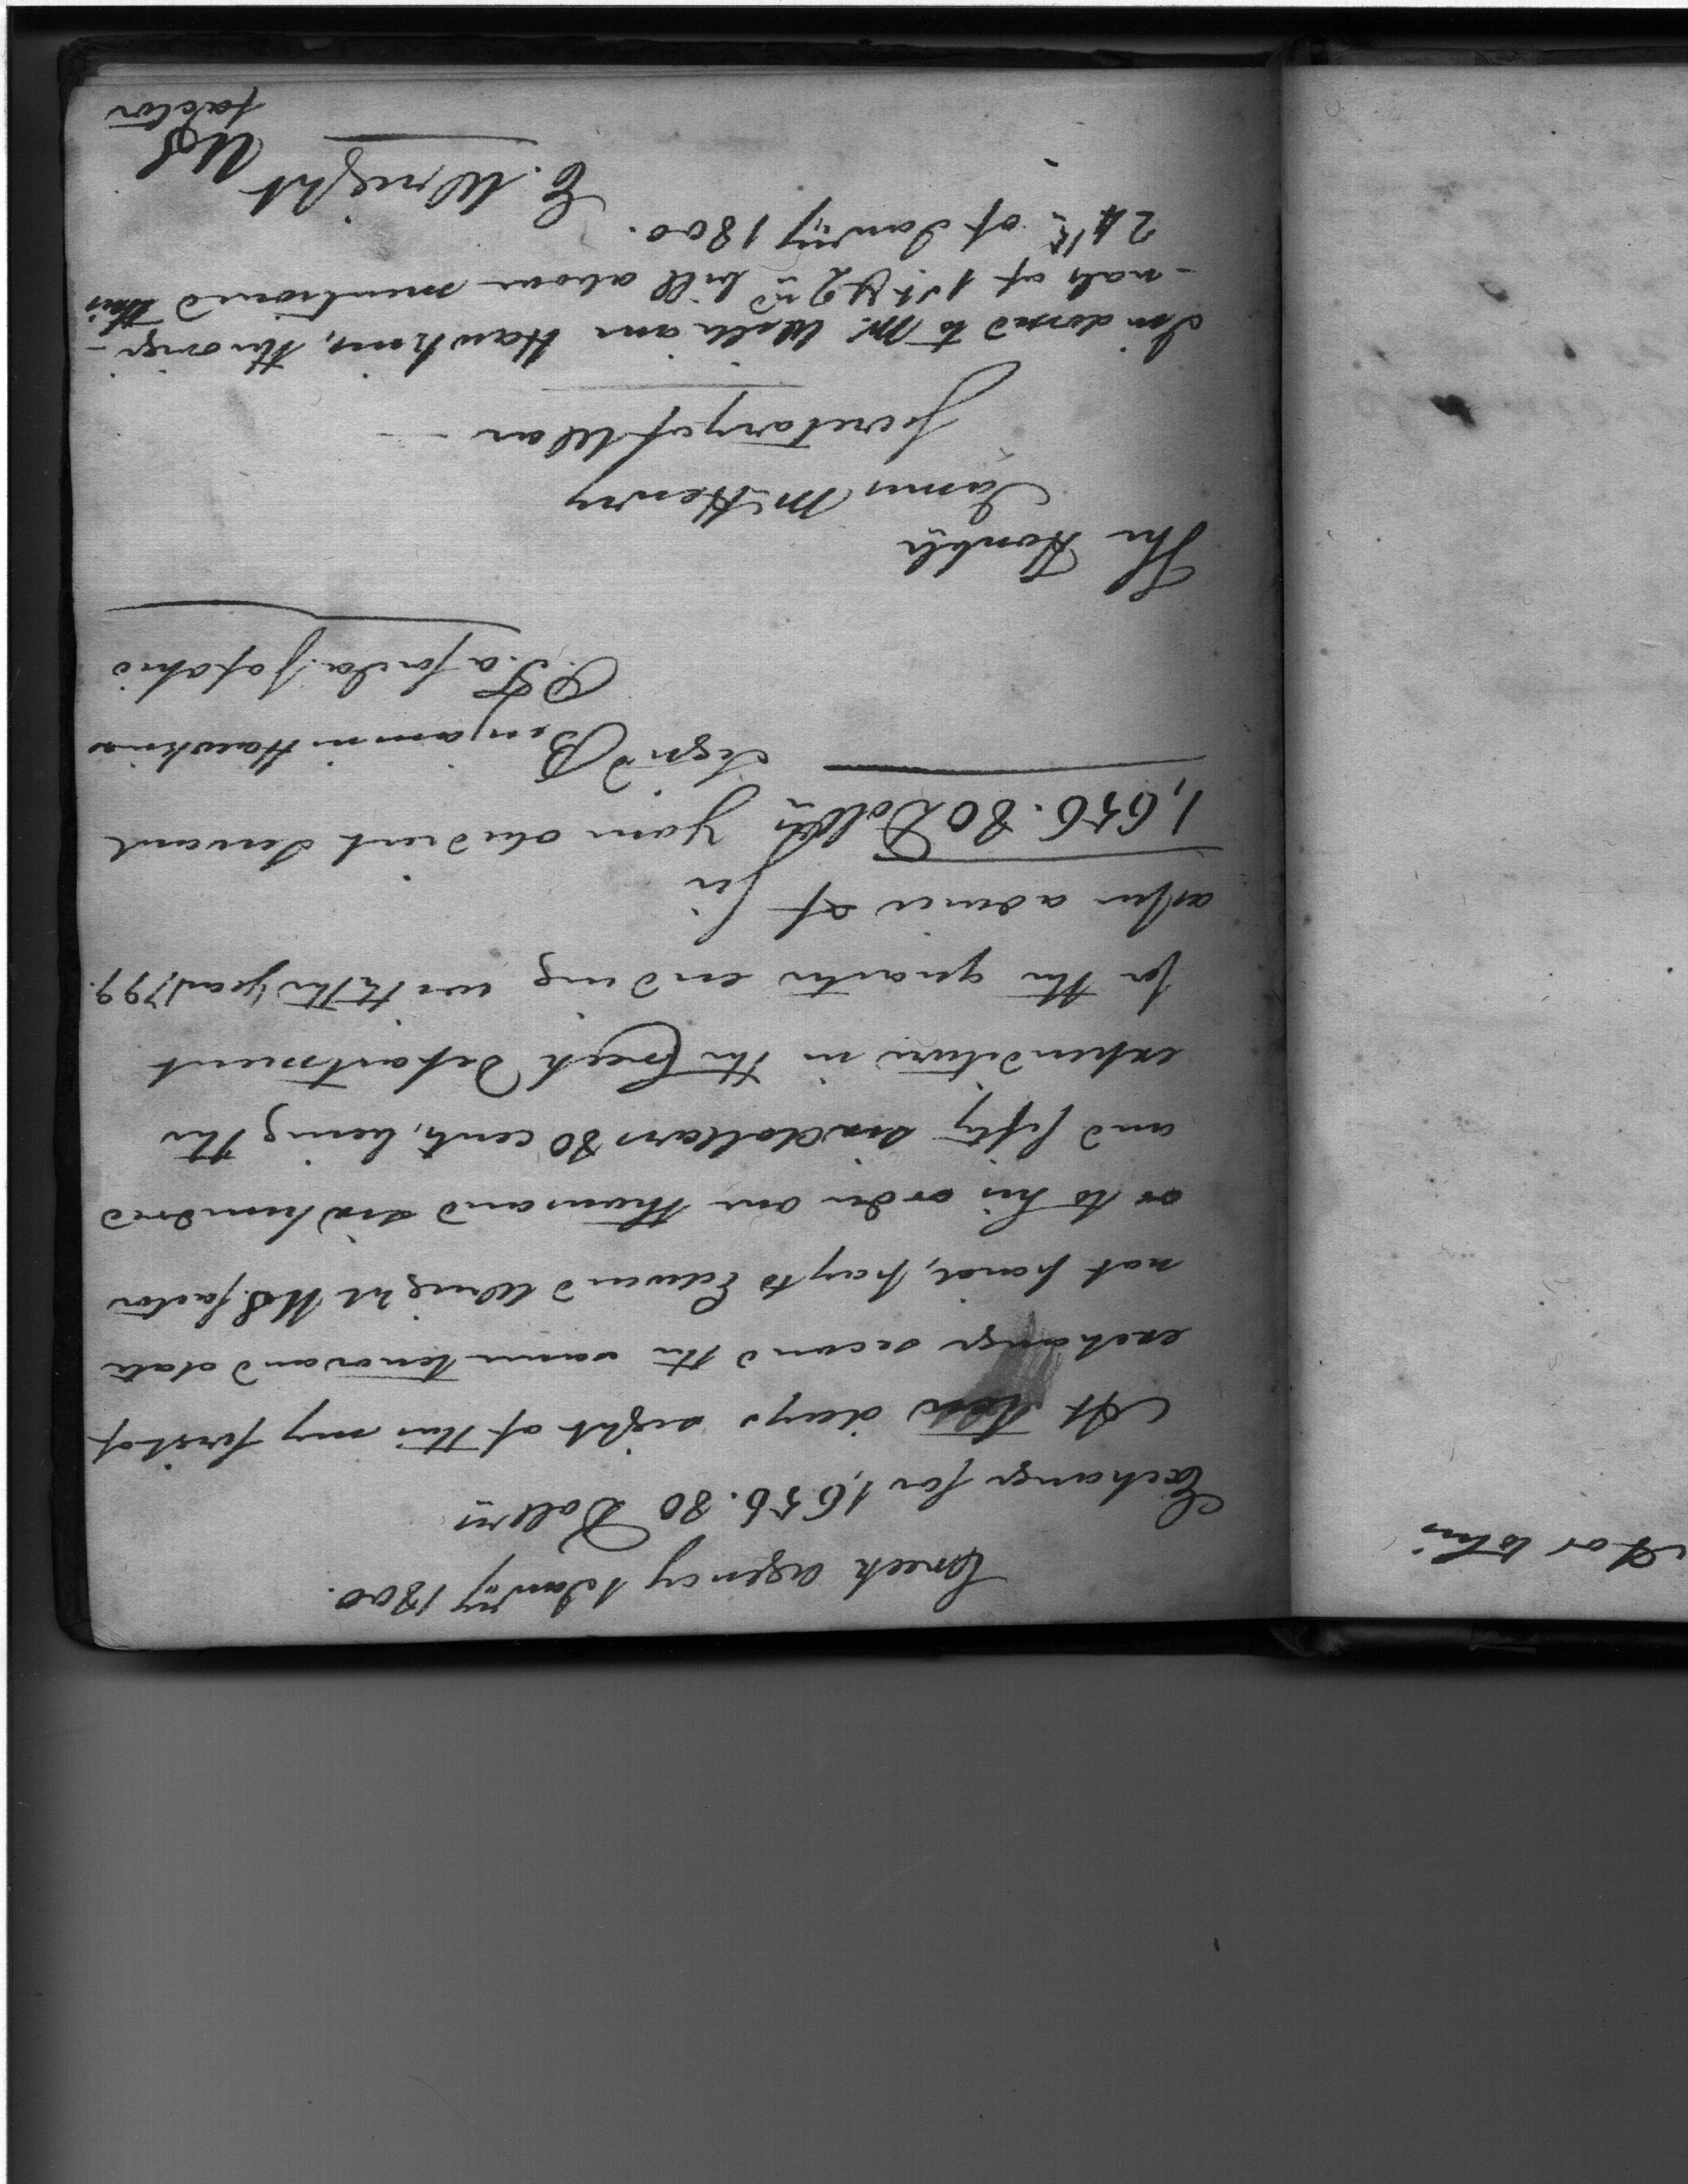 Creek agency 1 Jan'y 1800.
Exchange for 1,656.80 Dollrs
At ten days sight of this my first of
exchange second the same tenor and date
not paid, pay to Edward Wright U.S. factor
or to his order one thousand six hundred
and fifty six dollars 80 cents, being the
expenditure in the Creek Department
for the quarter ending with the year 1799.
as per advice of Sir
1,656.80 Dollrs your obedient servant
signd Benjamin Hawkins
P.T.a for I.a. S of Ohio
The Honble
James McHenry
Secretary of War
Indorsed to Mr. William Hawkins, the origi-
-nals of 1st & 2nd bill above mentioned this
24th of Janry 1800.
E. Wright US
factor
A or to his